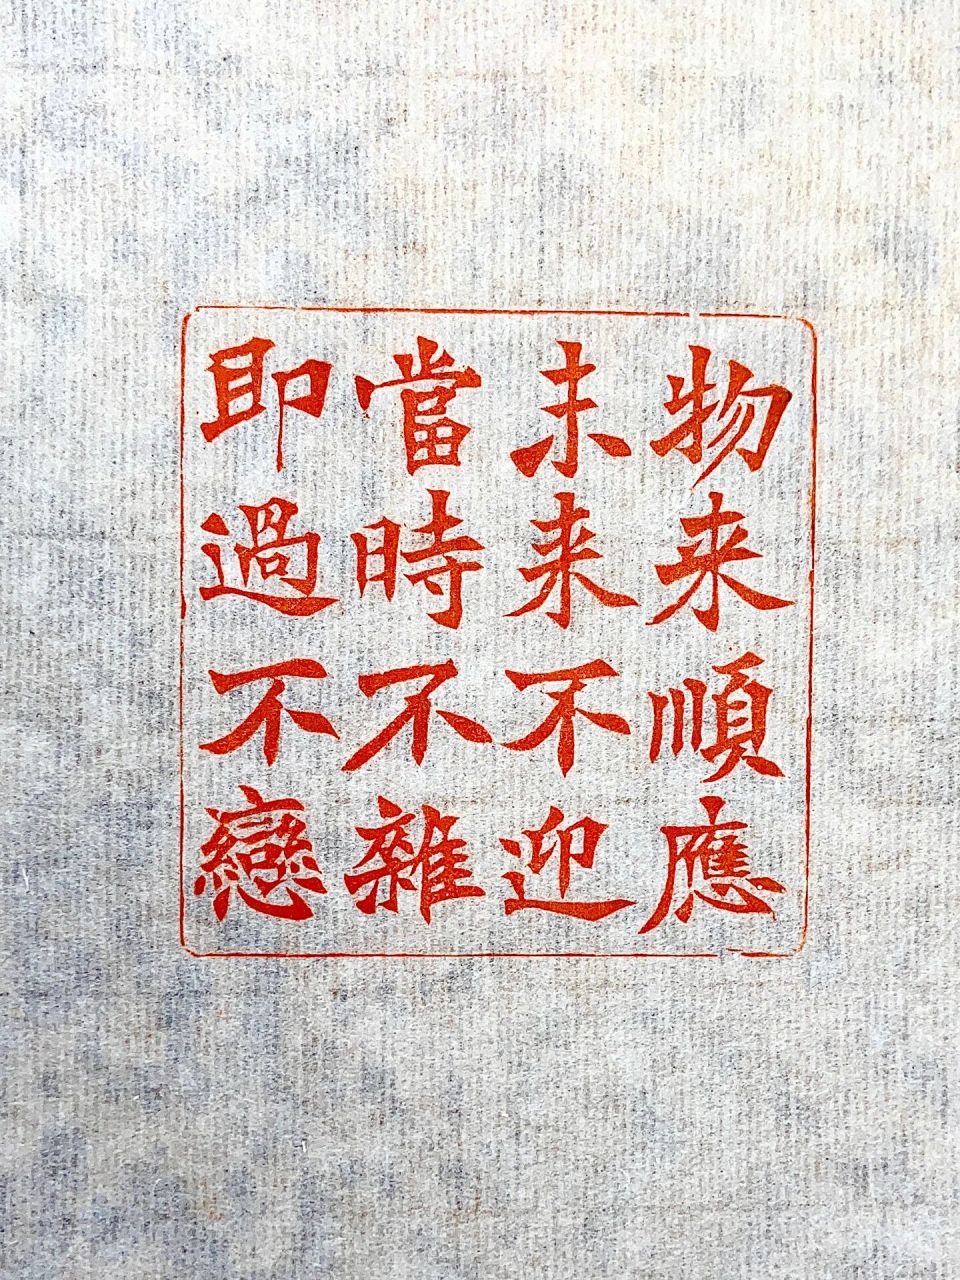 物来順應
未来不迎
當時不雜
即過不戀